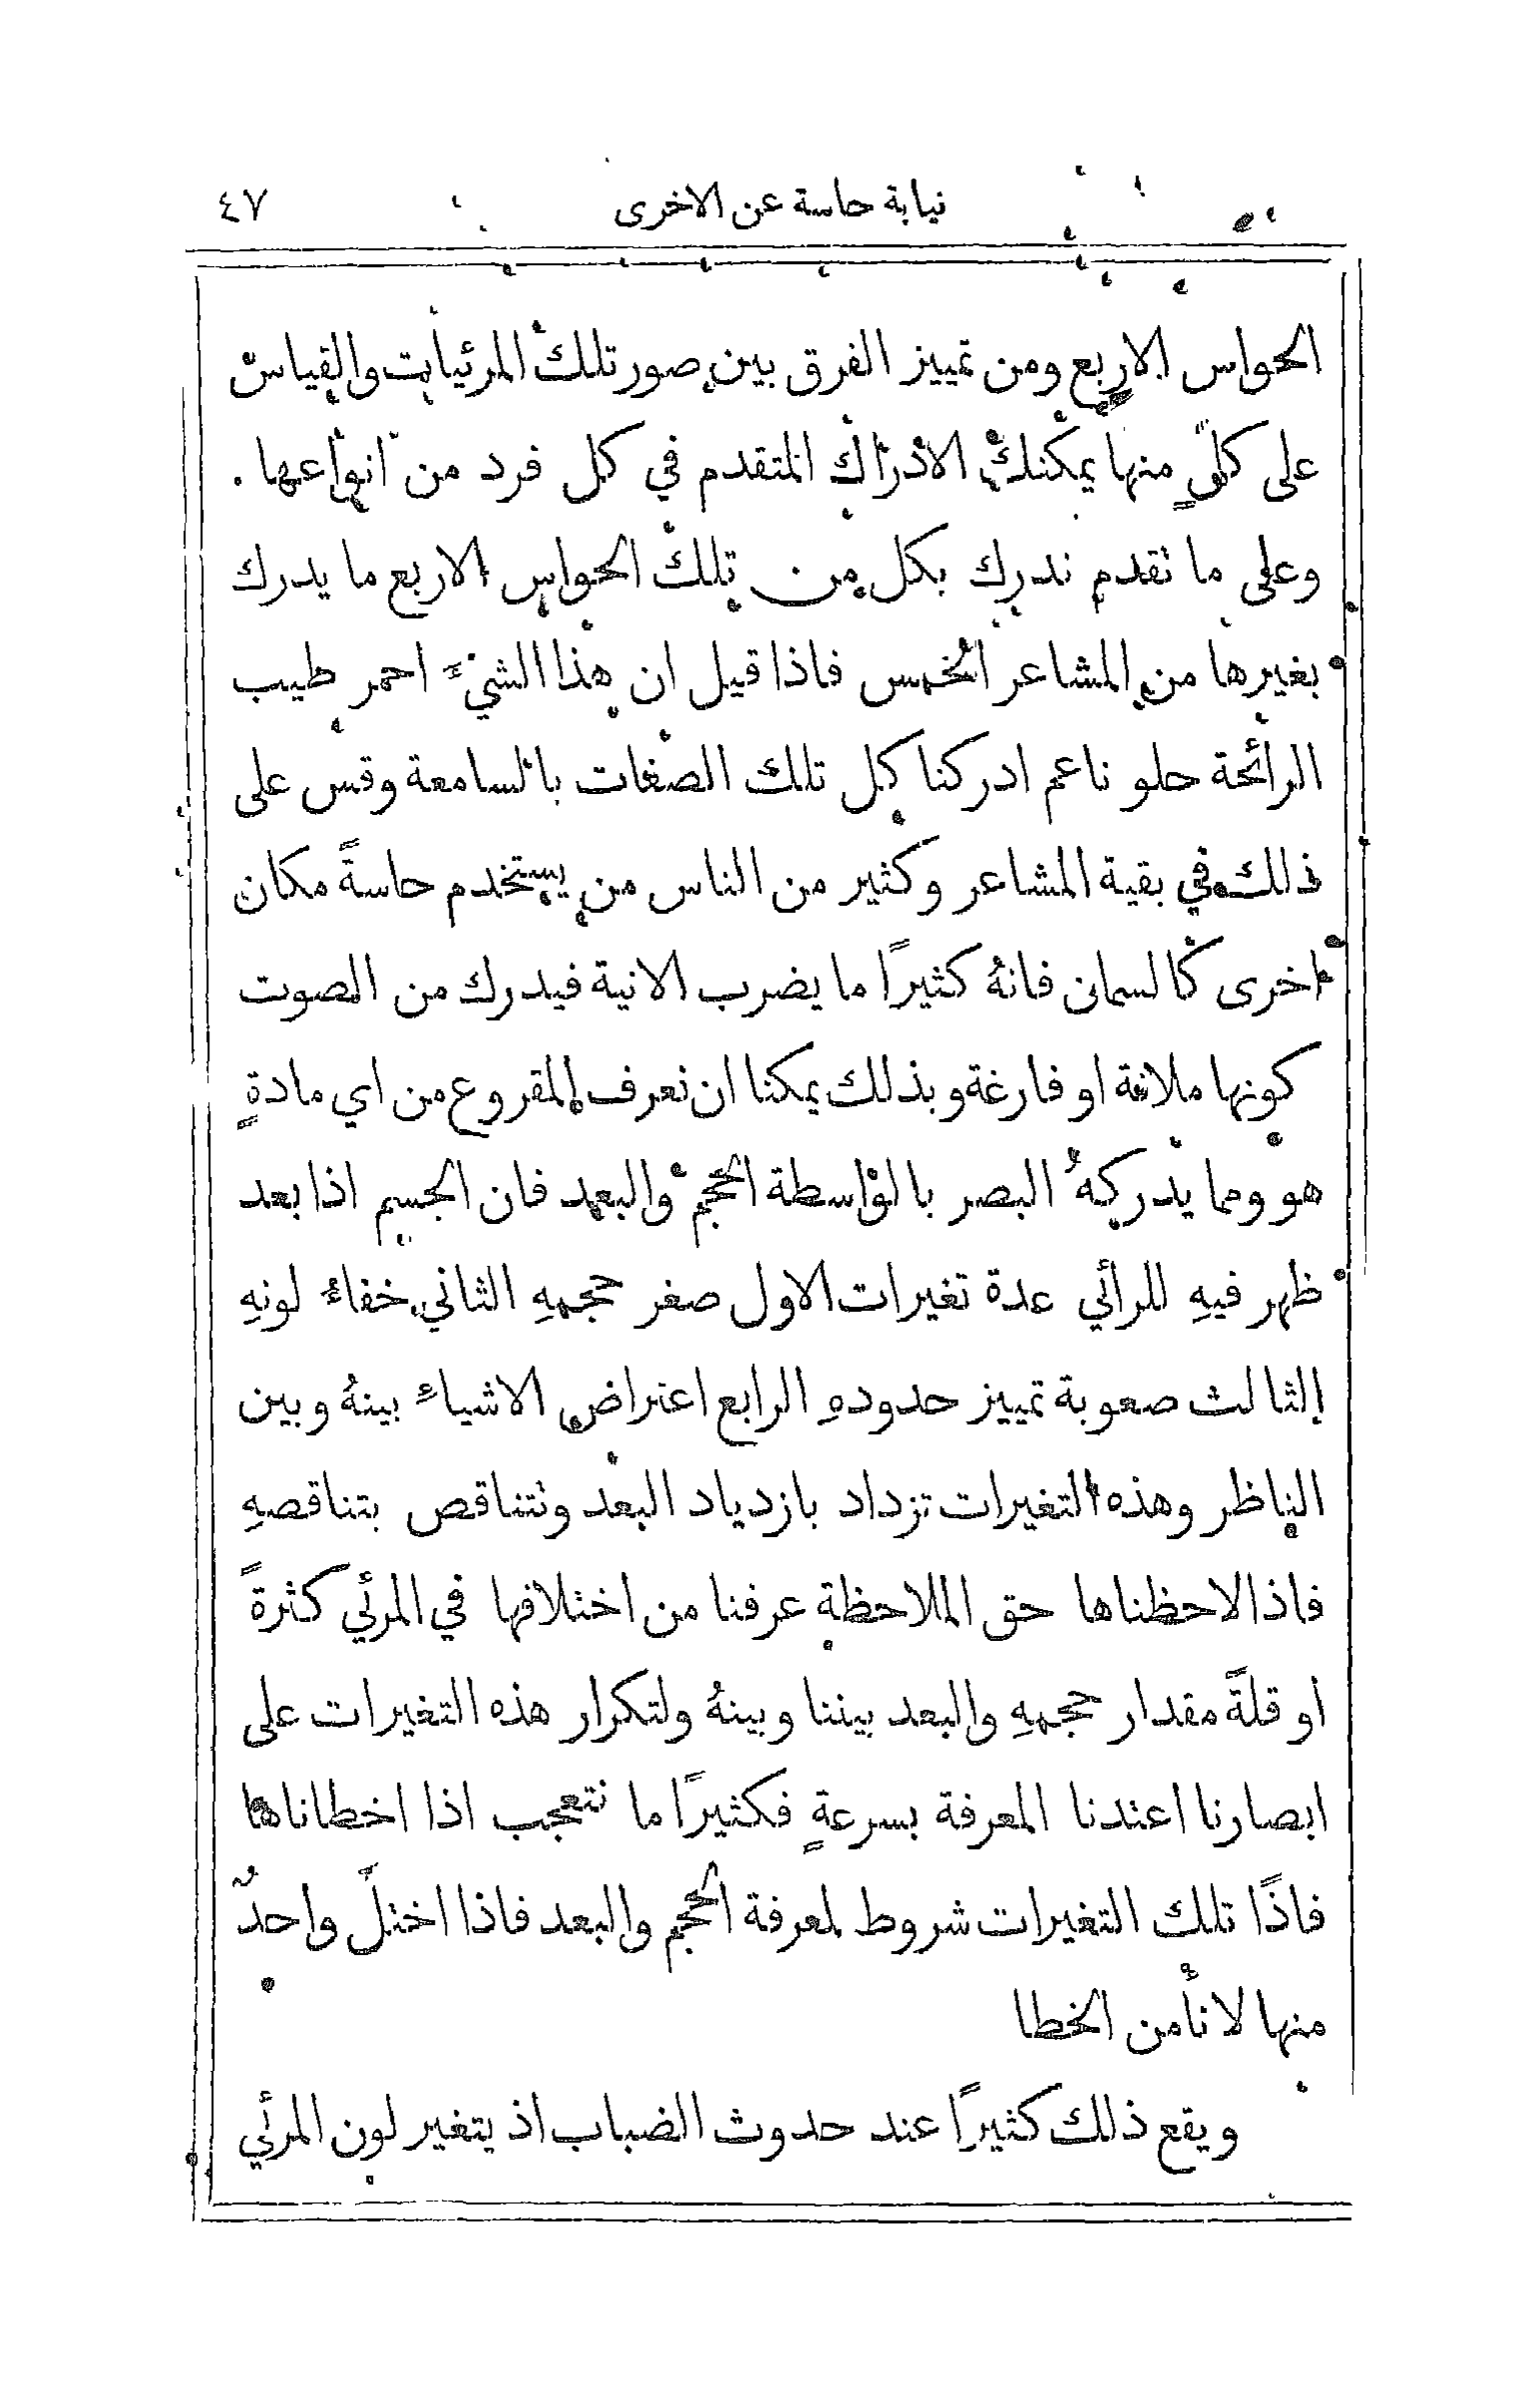 نيابة حاسة عن الاخرى ٤٧
الحواس الاربع ومن تمييز الفرق بين صور تلك المرئيات والقياس
على كلٍّ منها يمكنك الادراك المتقدم في كل فرد من انواعها .
وعلى ما نقدم ندرك بكل من تلك الحواس الاربع ما يدرك
بغيرها من المشاعر الخمس فاذا قيل ان هذا الشيءَ احمر طيب
الرائحة حلو ناعم ادركنا كل تلك الصفات بالسامعة وقس على
ذلك في بقية المشاعر وكثير من الناس من يستخدم حاسةً مكان
اخرى كالسمان فانهُ كثيرًا ما يضرب الانية فيدرك من الصوت
كونها ملانة او فارغة وبذلك يمكنا ان نعرف المقروع من اي مادةٍ
هو ومما يدركهُ البصر بالواسطة الحجم والبعد فان الجسم اذا بعد
ظهر فيهِ للرائي عدة تغيرات الاول صغر حجمهِ الثاني خفاء لونهِ
الثالث صعوبة تمييز حدودهِ الرابع اعتراض الاشياء بينهُ وبين
الناظر وهذه التغيرات تزداد بازدياد البعد ونتناقص بتناقصهِ
فاذا لاحظناها حق الملاحظة عرفنا من اختلافها في المرئي كثرةً
او قلةً مقدار حجمهِ والبعد بيننا وبينهُ ولتكرار هذه التغيرات على
ابصارنا اعتدنا المعرفة بسرعةٍ فكثيرًا ما نتعجب اذا اخطاناها
فاذًا تلك التغيرات شروط لمعرفة الحجم والبعد فاذا اختلَّ واحدٌ
منها لا نأْمن الخطا
ويقع ذلك كثيرًا عند حدوث الضباب اذ يتغير لون المرئي